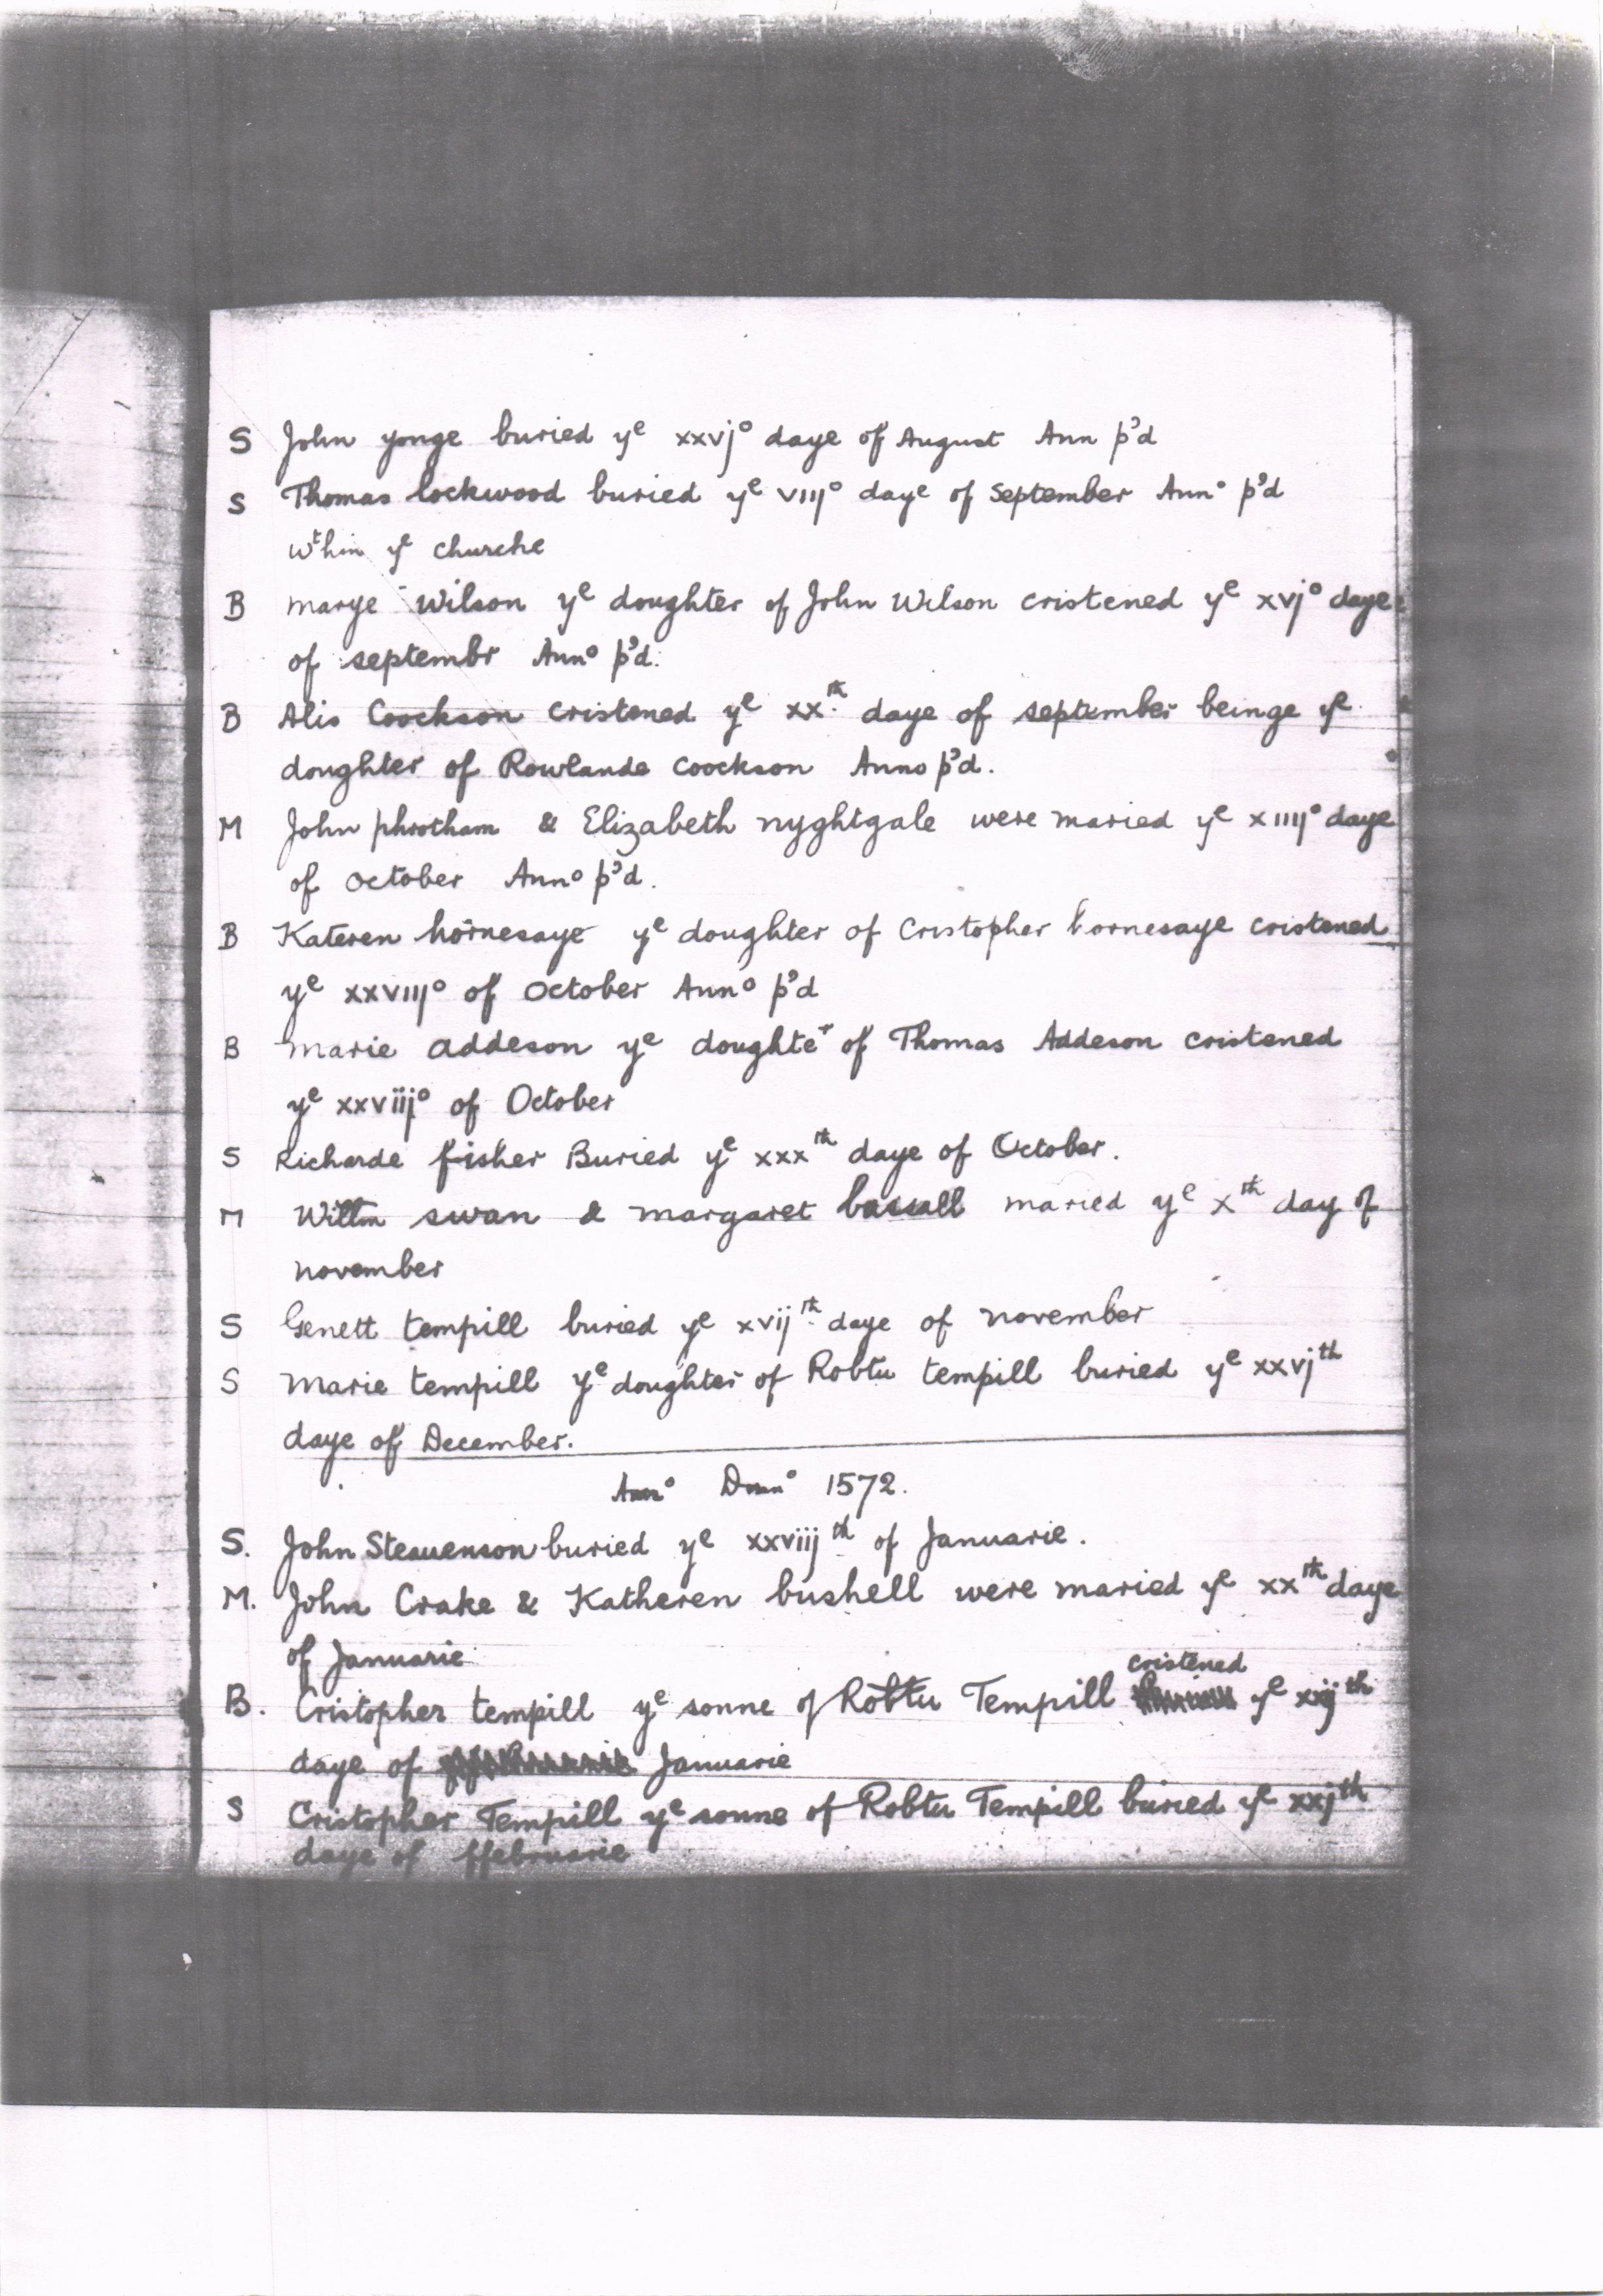 S John yonge buried yᵉ xxvjº daye of August Ann p'd
S Thomas lockwood buried yᵉ viijº daye of September Annº p'd
wᵗhin yᵉ churche
B marye Wilson yᵉ doughter of John Wilson cristened yᵉ xvjº daye
of septembr Annº p'd.
B Alis Coockson cristened yᵉ xxᵗʰ daye of september beinge yᵉ
doughter of Rowlande coockson Anno p'd.
M John phrotham & Elizabeth nyghtgale were maried yᵉ xiiijº daye
of October Annº p'd.
B Kateren hornesaye yᵉ doughter of Cristopher hornesaye cristened
yᵉ xxviijº of October Annº p'd
B marie addeson yᵉ doughter of Thomas Addeson cristened
yᵉ xxviijº of October
S Richarde fisher Buried yᵉ xxxᵗʰ daye of October.
M Willm swan & margaret bassall maried yᵉ xᵗʰ day of
november
S Genett tempill buried yᵉ xvijᵗʰ daye of november
S Marie tempill yᵉ doughter of Robtu tempill buried yᵉ xxvjᵗʰ
daye of December.
Annº Dmnº 1572.
S. John Steuenson buried yᵉ xxviijᵗʰ of Januarie.
M. John Crake & Katheren bushell were maried yᵉ xxᵗʰ daye
of Januarie
cristened
B. Cristopher tempill yᵉ sonne of Robtu Tempill yᵉ xxijᵗʰ
daye of Januarie
S Cristopher Tempill yᵉ sonne of Robtu Tempill buried yᵉ xxjᵗʰ
daye of ffebruarie